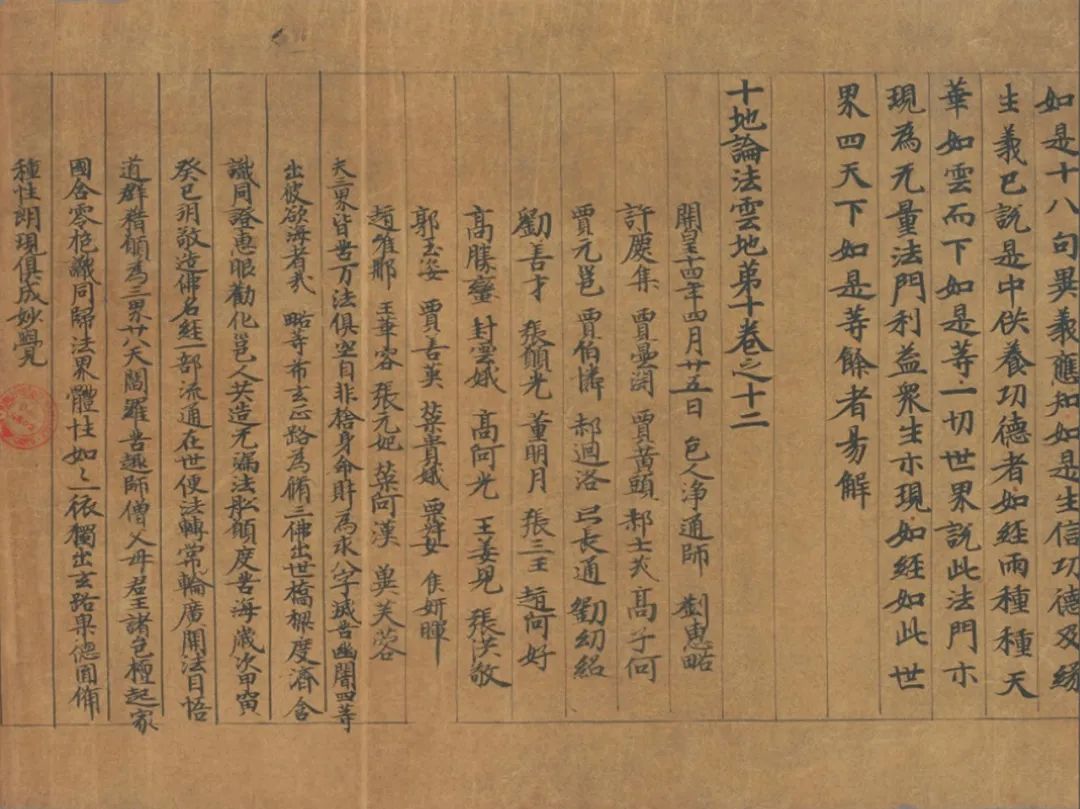 如是十八句異義應知如是生信功德及緣
生義已說是中供養功德者如經雨種種天
華如雲而下如是等一切世界說此法門亦
現為无量法門利益眾生亦現如經如此世
界四天下如是等餘者易解
十地論法雲地第十卷之十二
開皇十四年四月廿五日 邑人淨通師 劉惠略
許慶集 賈曇 賈黃頭 郝士 高子何
賈元邕 賈伯憐 郝迴洛 呂長通 劉幼紹
劉善才 張願光 董明月 張三王 趙阿好
高勝蠻 封雲娥 高阿光 王姜兒 張洪敬
郭玉姿 賈善英 葉貴娥 賈 女 侯妍暉
趙維那 王華容 張元妃 葉阿漢 吳芙蓉
夫三界皆苦万法俱空自非捨身命財為求八字滅苦幽闇四等
出彼欲海者哉 略等布玄心路為脩三佛出世橋樑度濟含
識同證惠眼勸化邑人共造无漏法船願度苦海歲次甲寅
癸巳朔敬造佛名經一部流通在世使法轉常輪廣開法目悟
道群猪願為三界廿八天閻羅苦趣師僧父母君王諸邑檀起家
國含零抱識同歸法界體性如〻一依獨出玄路果德圓脩
種性朗現俱成妙覺